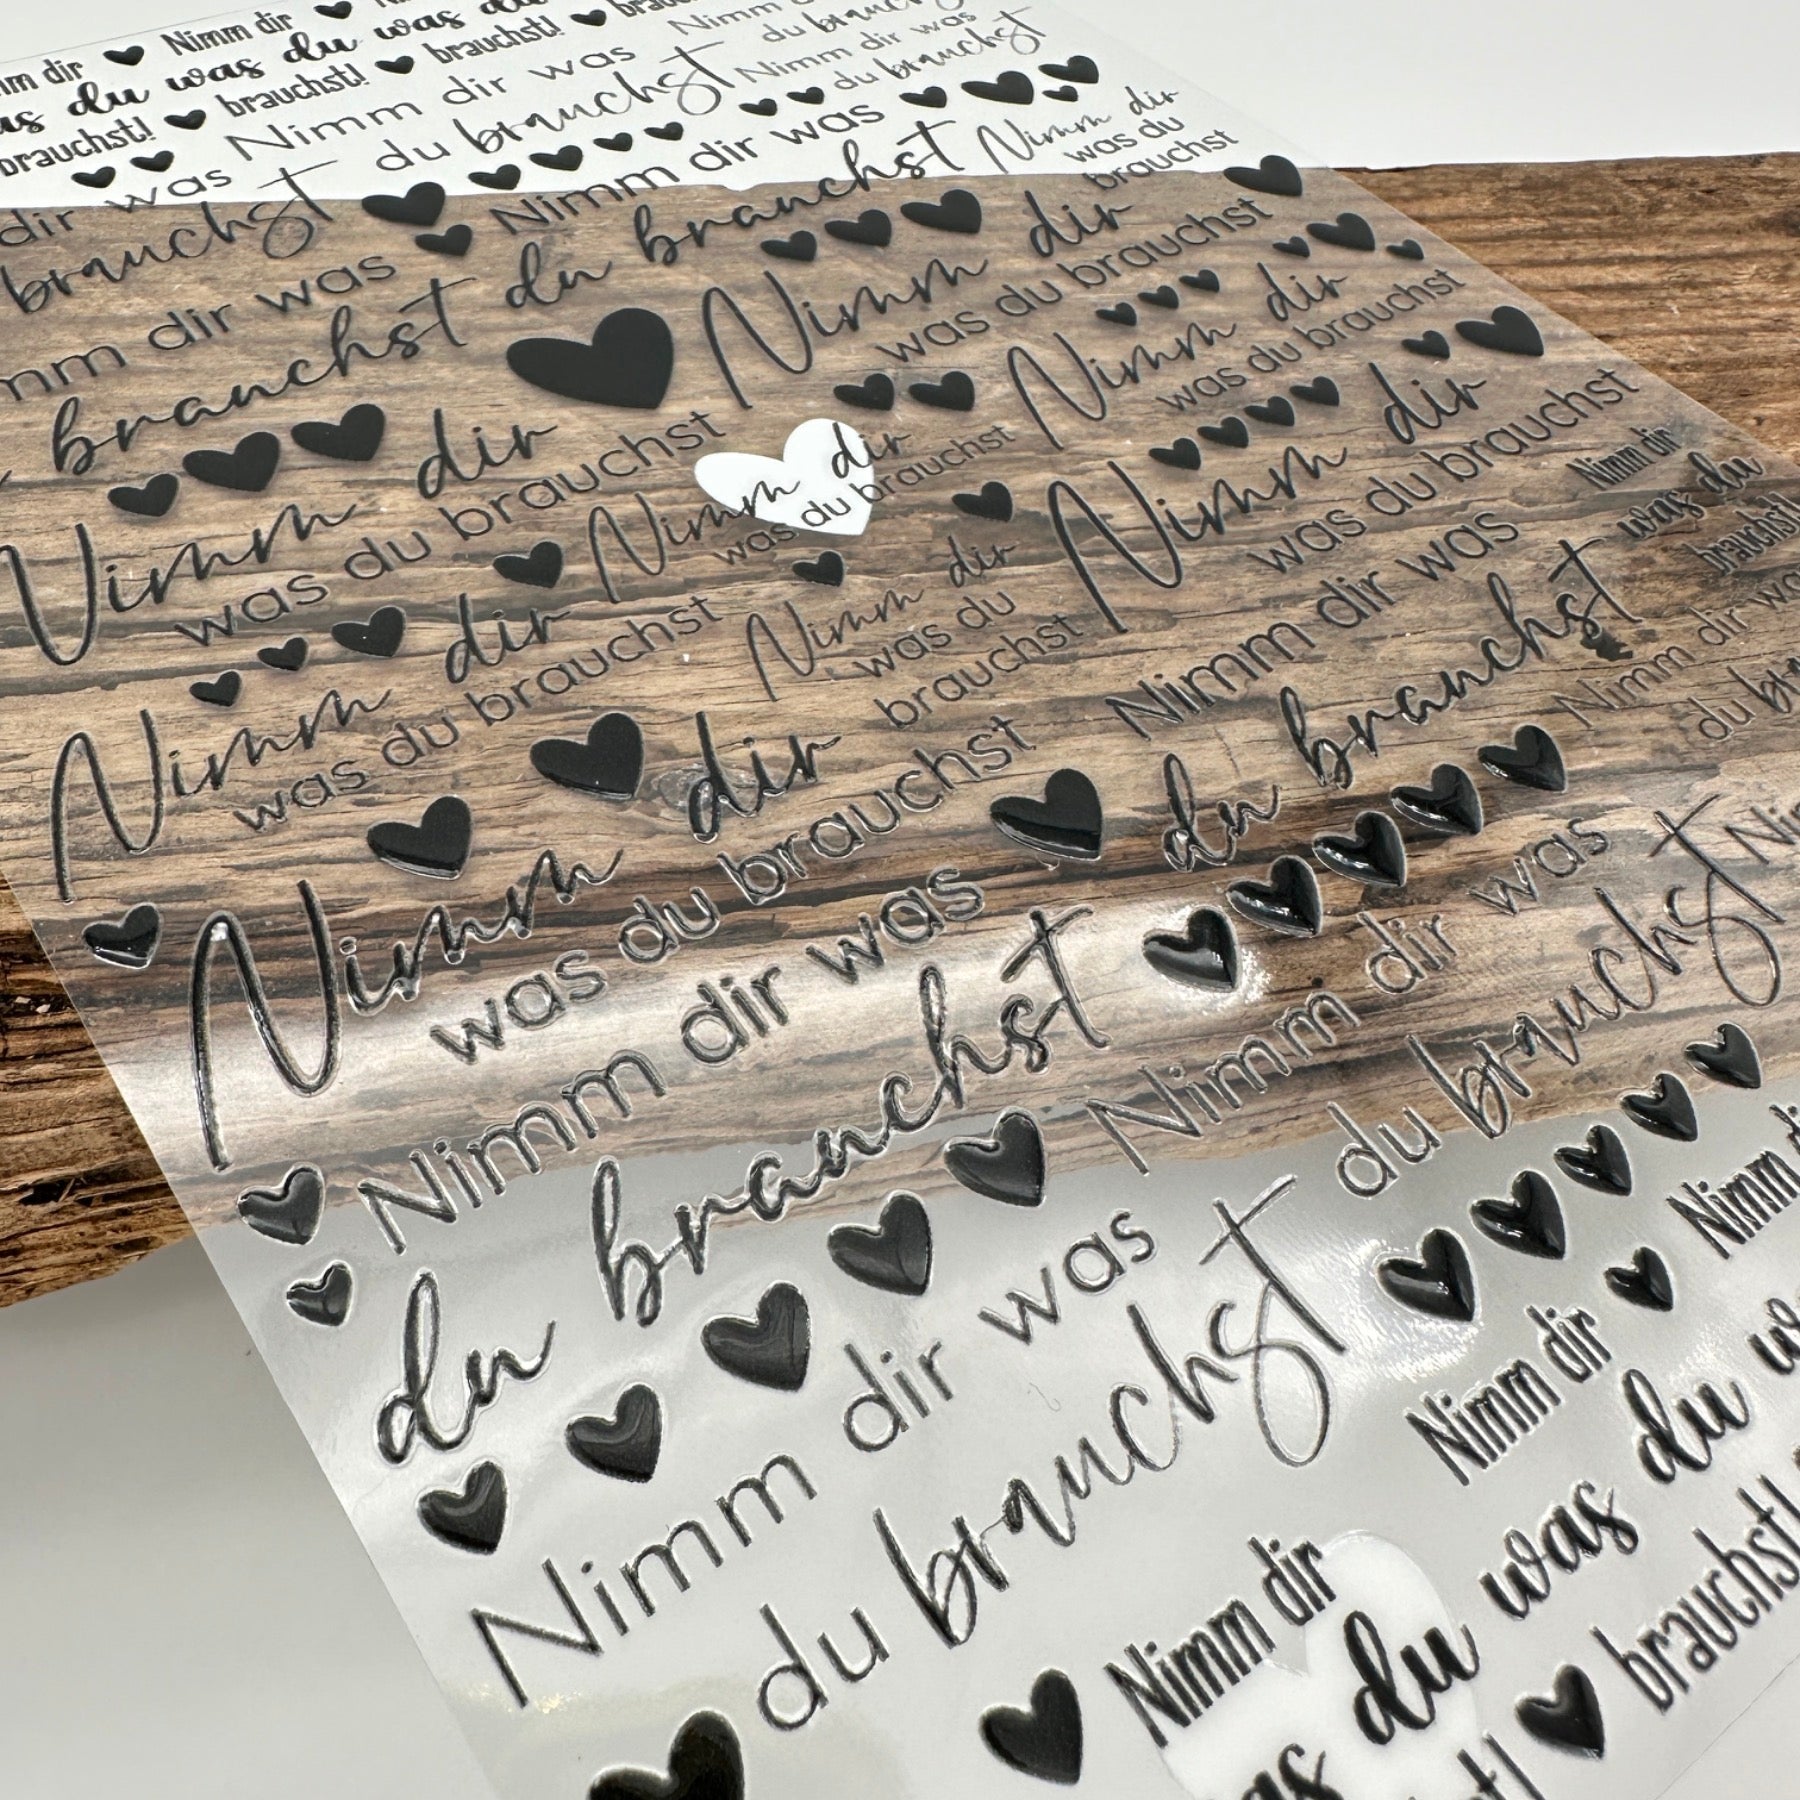 Nimm dir
was du was du
brauchst! brauchst!
Nimm dir was
du brauchst
Nimm dir was
du brauchst
Nimm dir was
du brauchst
Nimm dir
was du
brauchst
dir was
brauchst
dir was
brauchst
Nimm dir
was du brauchst
Nimm dir
was du brauchst
Nimm dir
was du brauchst
Nimm dir
was du brauchst
Nimm dir
was du brauchst
Nimm dir
was du
brauchst!
Nimm dir
was du brauchst
Nimm dir
was du
brauchst
Nimm dir was
du brauchst
Nimm dir was
Nimm dir
was du brauchst
Nimm dir was
du brauchst
Nimm dir was
du brauchst
Nimm dir was
du brauchst
Nimm dir
was du
brauchst!
Nimm dir
du